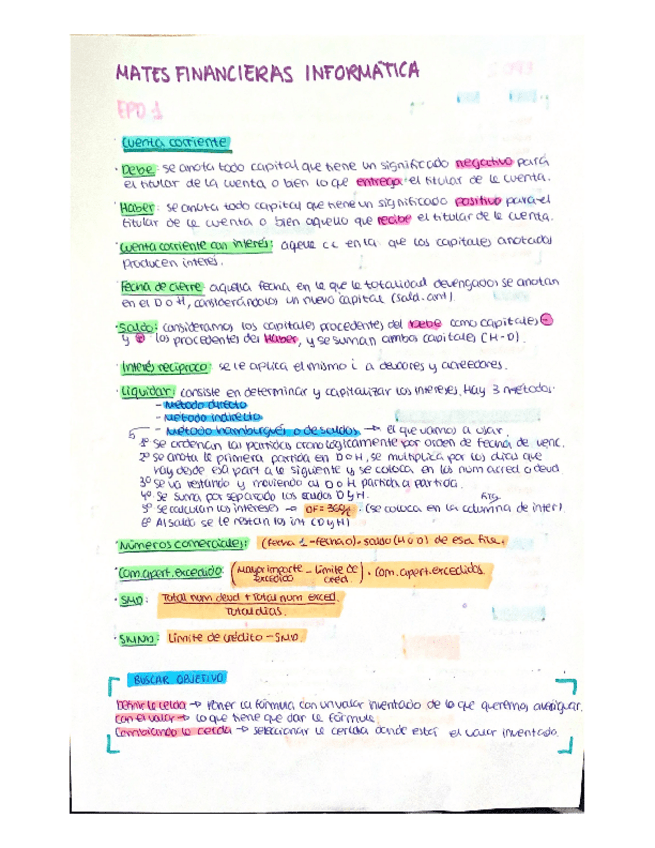 MATES FINANCIERAS INFORMÁTICA
EPD 1
Cuenta corriente
· Debe: se anota todo capital que tiene un significado negativo para
el titular de la cuenta o bien lo que entrega el titular de la cuenta.
· Haber: se anota todo capital que tiene un significado positivo para el
titular de la cuenta o bien aquello que recibe el titular de la cuenta.
· Cuenta corriente con interés: aquella cc en la que los capitales anotados
producen interés.
· Fecha de cierre: aquella fecha en la que la totalidad devengados se anotan
en el D o H, considerándolos un nuevo capital (sald. ant).
· Saldo: consideramos los capitales procedentes del Debe como capitales ⊖
y ⊕ los procedentes del Haber, y se suman ambos capitales (H-D).
· Interés recíproco: se le aplica el mismo i a deudores y acreedores.
· Liquidar: consiste en determinar y capitalizar los intereses. Hay 3 métodos:
- Método directo
- Método indirecto
- Método hamburgués o de saldos → el que vamos a usar.
1º Se ordenan las partidas cronológicamente por orden de fecha de venc.
2º Se anota la primera partida en D o H, se multiplica por los días que
vay desde esa part a la siguiente y se coloca en los num acred o deud.
3º Se va restando y moviendo al D o H partida a partida.
4º Se suma por separado los saldos D y H.
5º Se calculan los intereses → DF = 360/i (se coloca en la columna de inter)
6º Al saldo se le restan los int (D y H)
· Números comerciales: (fecha 1 - fecha 0) · saldo (H o D) de esa fila.
· Com. apert. excedido: (Mayor importe excedido - Límite de cred.) · com. apert. excedidos.
· SMD: Total num deud + Total num exced.
Total días.
· SMND: Límite de crédito - SMD.
BUSCAR OBJETIVO
Definir la celda → Poner la fórmula con un valor inventado de lo que queremos averiguar.
Con el valor → Lo que tiene que dar la fórmula.
Cambiando la celda → seleccionar la celda donde está el valor inventado.